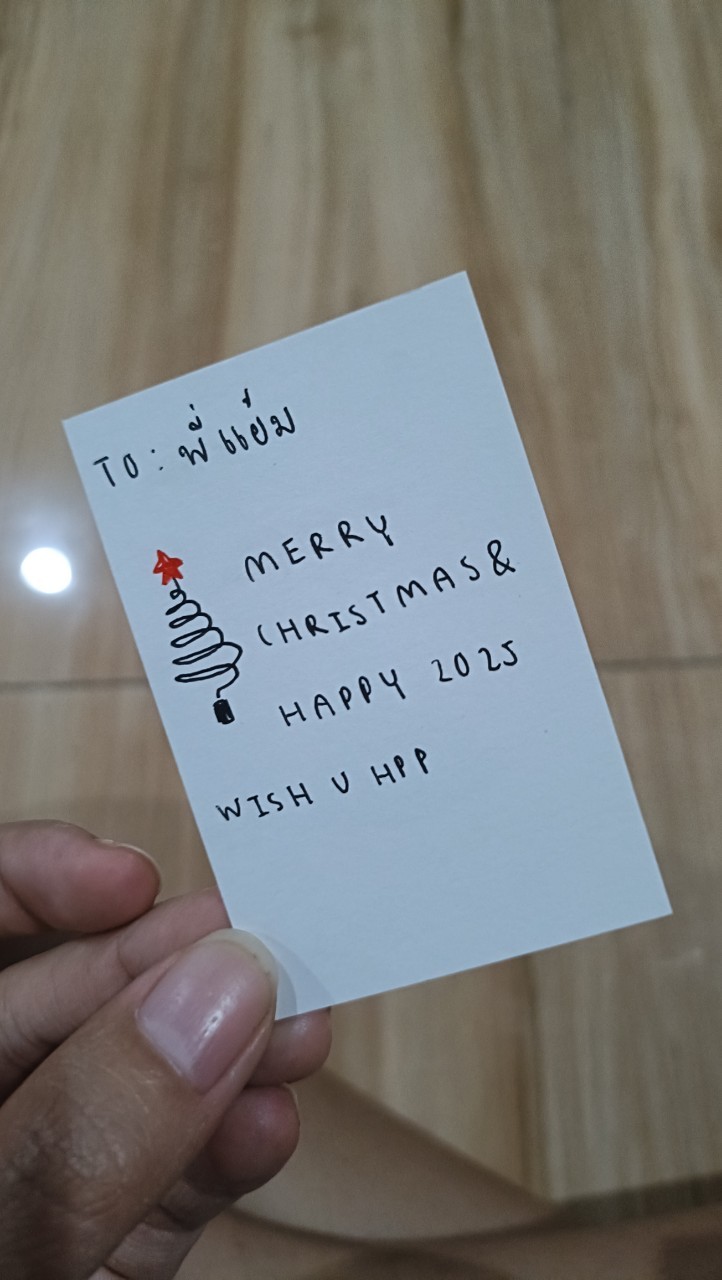 TO: พี่แย้ม
MERRY
CHRISTMAS &
HAPPY 2025
WISH U HPP